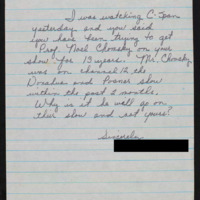 I was watching C. Span
yesterday and you said
you have been trying to get
Prof. Noel Chomsky on your
show for 13 years. Mr. Chomsky
was on channel 12 the
Donahue and Posner show
within the past 2 months.
Why is it he will go on
their show and not yours?
Sincerely